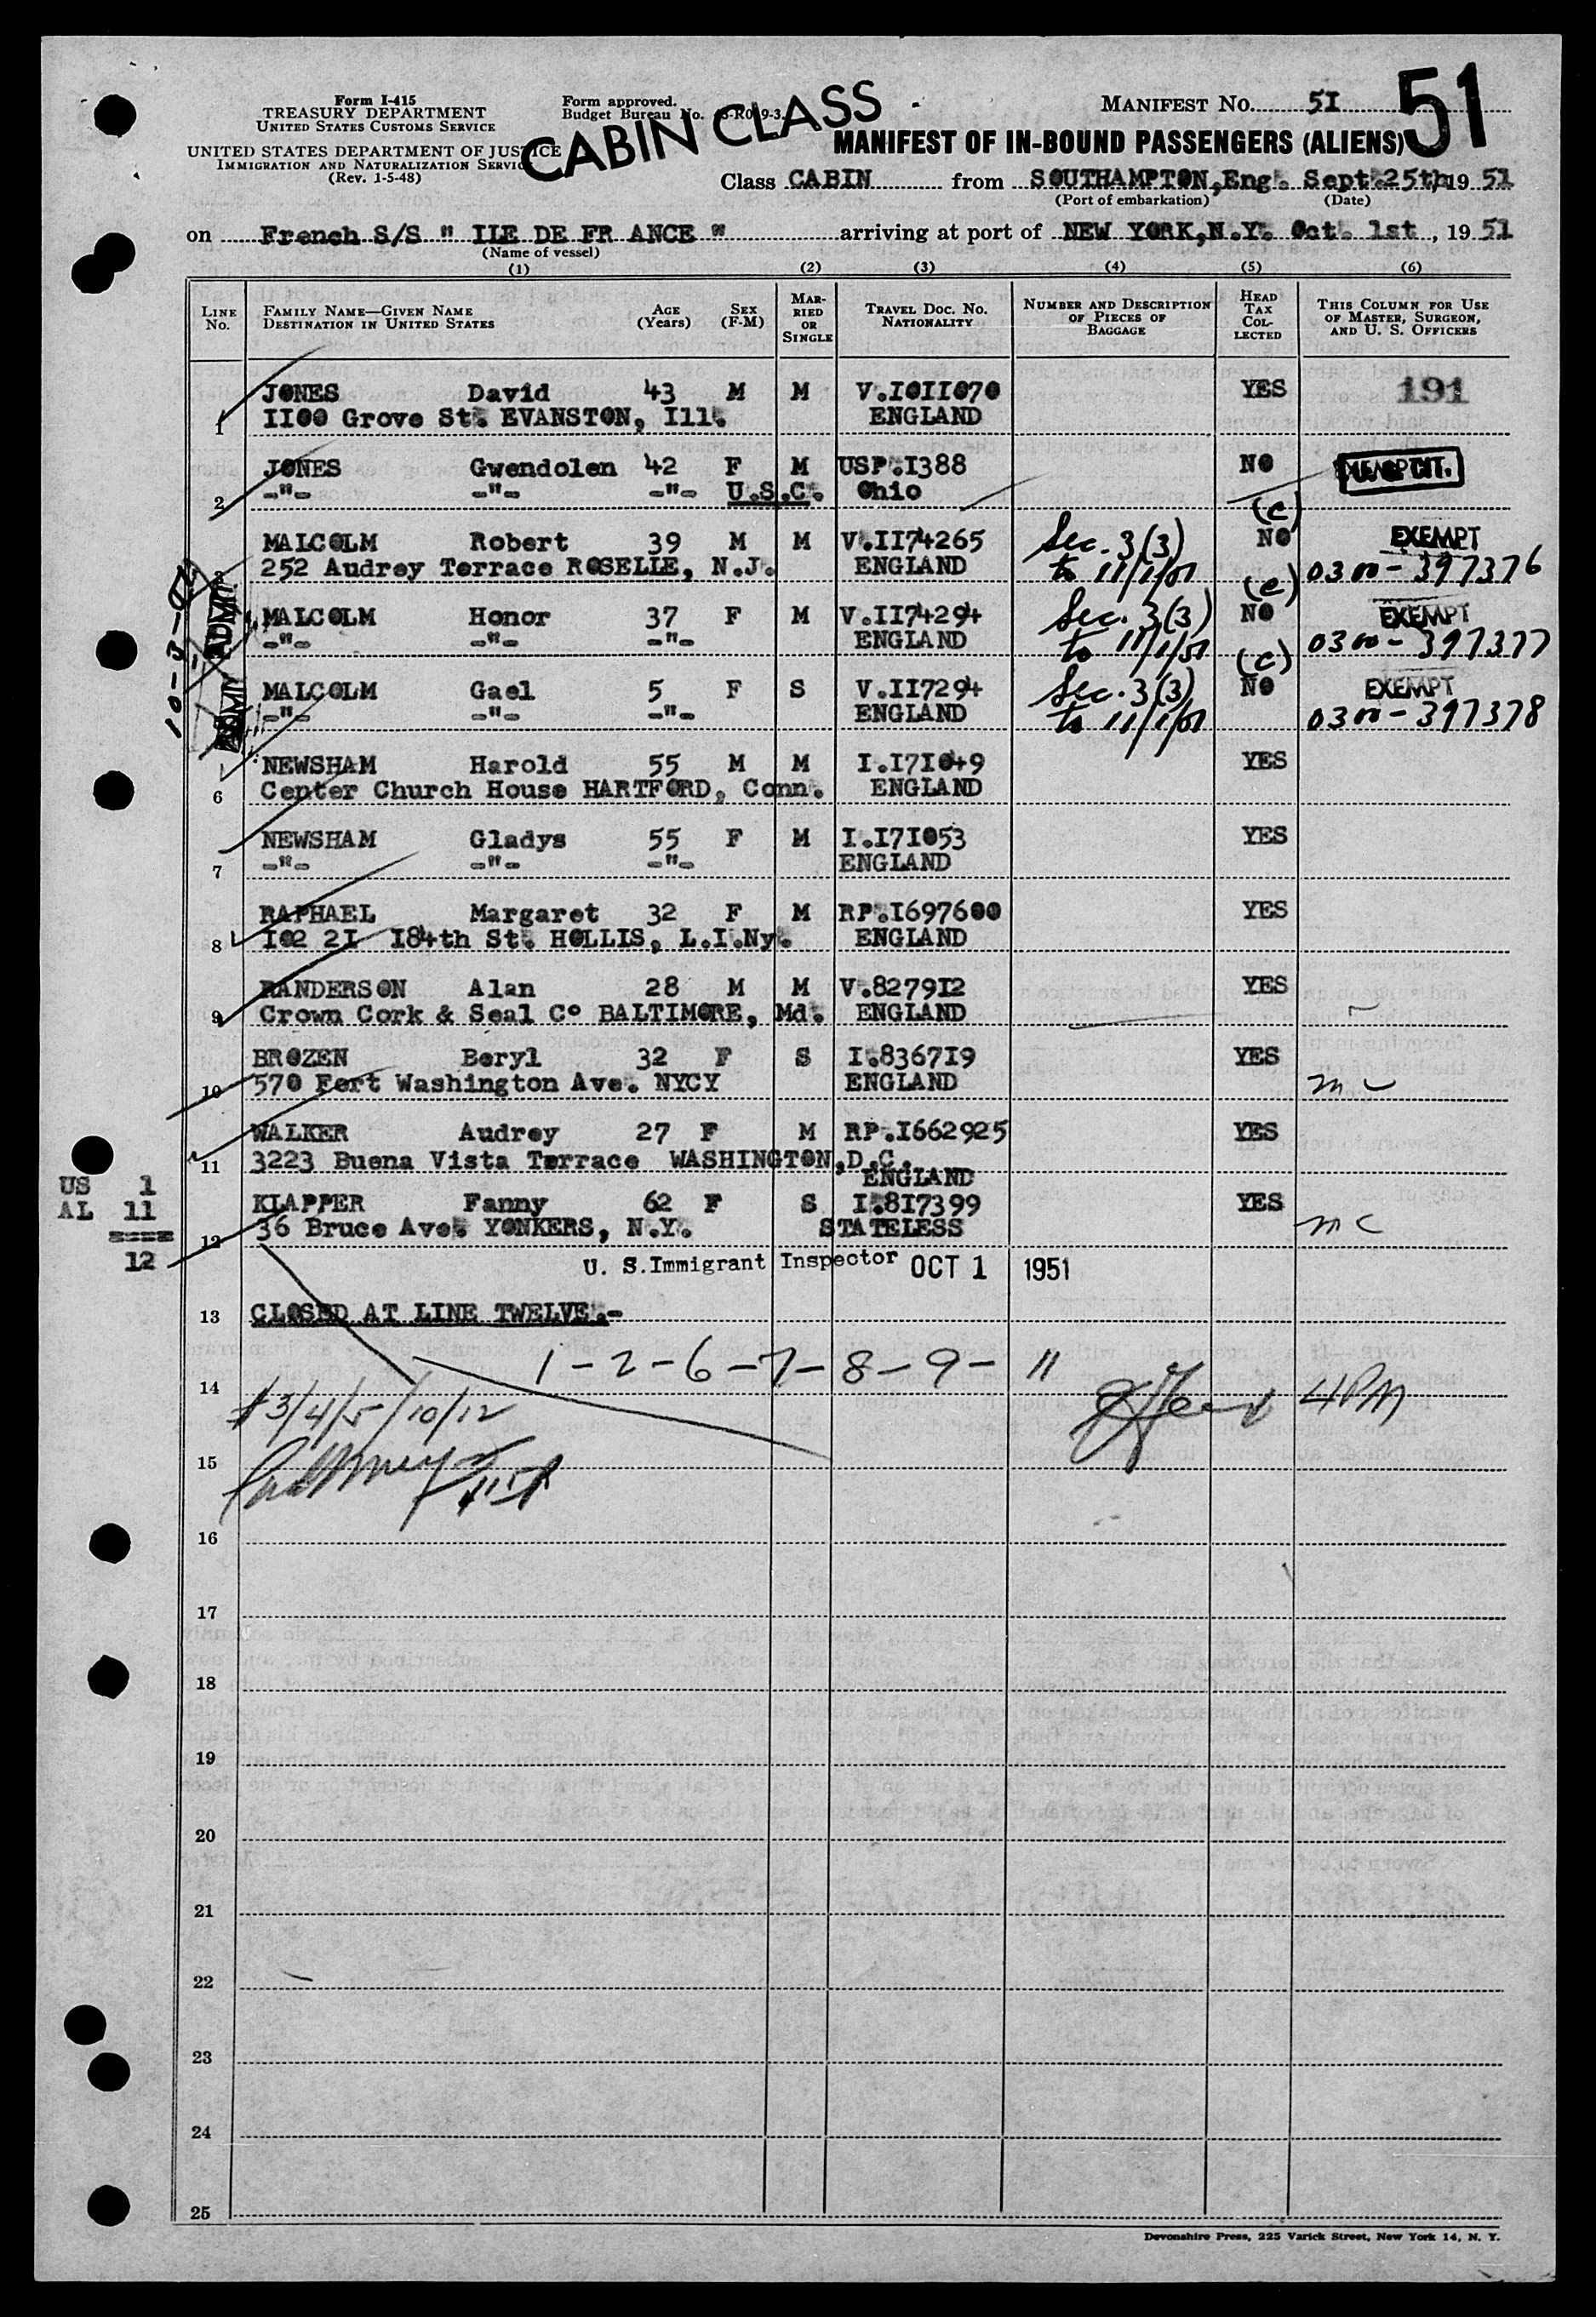 Form I-415
TREASURY DEPARTMENT
UNITED STATES CUSTOMS SERVICE
UNITED STATES DEPARTMENT OF JUSTICE
IMMIGRATION AND NATURALIZATION SERVICE
(Rev. 1-5-48)
Form approved.
Budget Bureau No.
CABIN CLASS
MANIFEST No. 5I
51
MANIFEST OF IN-BOUND PASSENGERS (ALIENS)
Class CABIN from SOUTHAMPTON,Eng. Sept.25th 19 51
(Port of embarkation) (Date)
on French S/S " ILE DE FR ANCE " arriving at port of NEW YORK,N.Y. Oct. 1st , 19 51
(Name of vessel)
(1) (2) (3) (4) (5) (6)
LINE No. FAMILY NAME—GIVEN NAME DESTINATION IN UNITED STATES AGE (Years) SEX (F-M) MARRIED OR SINGLE TRAVEL DOC. NO. NATIONALITY NUMBER AND DESCRIPTION OF PIECES OF BAGGAGE HEAD TAX COLLECTED THIS COLUMN FOR USE OF MASTER, SURGEON, AND U. S. OFFICERS
JONES David 43 M M V.I0II070 YES 191
1 II00 Grove St. EVANSTON, Ill. ENGLAND
JONES Gwendolen 42 F M USP.I388 NO
2 -"- -"- -"- U.S.C. Ohio
MALCOLM Robert 39 M M V.II74265 Sec. 3(3) (c) NO EXEMPT
3 252 Audrey Terrace ROSELLE, N.J. ENGLAND to 11/1/51 0300-397376
ADMIT
MALCOLM Honor 37 F M V.II74294 Sec. 3(3) (c) NO EXEMPT
-"- -"- -"- ENGLAND to 11/1/51 0300-397377
MALCOLM Gael 5 F S V.II7294 Sec. 3(3) (c) NO EXEMPT
-"- -"- -"- ENGLAND to 11/1/51 0300-397378
NEWSHAM Harold 55 M M I.I7I049 YES
6 Center Church House HARTFORD, Conn. ENGLAND
NEWSHAM Gladys 55 F M I.I7I053 YES
7 -"- -"- -"- ENGLAND
RAPHAEL Margaret 32 F M RP.I697600 YES
8 I02 2I I84th St. HOLLIS, L.I.Ny. ENGLAND
RANDERSON Alan 28 M M V.8279I2 YES
9 Crown Cork & Seal Co BALTIMORE, Md. ENGLAND
BROZEN Beryl 32 F S I.8367I9 YES
10 570 Fort Washington Ave. NYCY ENGLAND
WALKER Audrey 27 F M RP.I662925 YES
11 3223 Buena Vista Terrace WASHINGTON,D.C. ENGLAND
KLAPPER Fanny 62 F S I.8I7399 YES
12 36 Bruce Ave. YONKERS, N.Y. STATELESS mc
US 1
AL 11
====
12
U. S.Immigrant Inspector OCT 1 1951
13 CLOSED AT LINE TWELVE.-
1-2-6-7-8-9- 11
14 4PM
#3/4/5/10/12
15
16
17
18
19
20
21
22
23
24
25
Devonshire Press, 225 Varick Street, New York 14, N. Y.